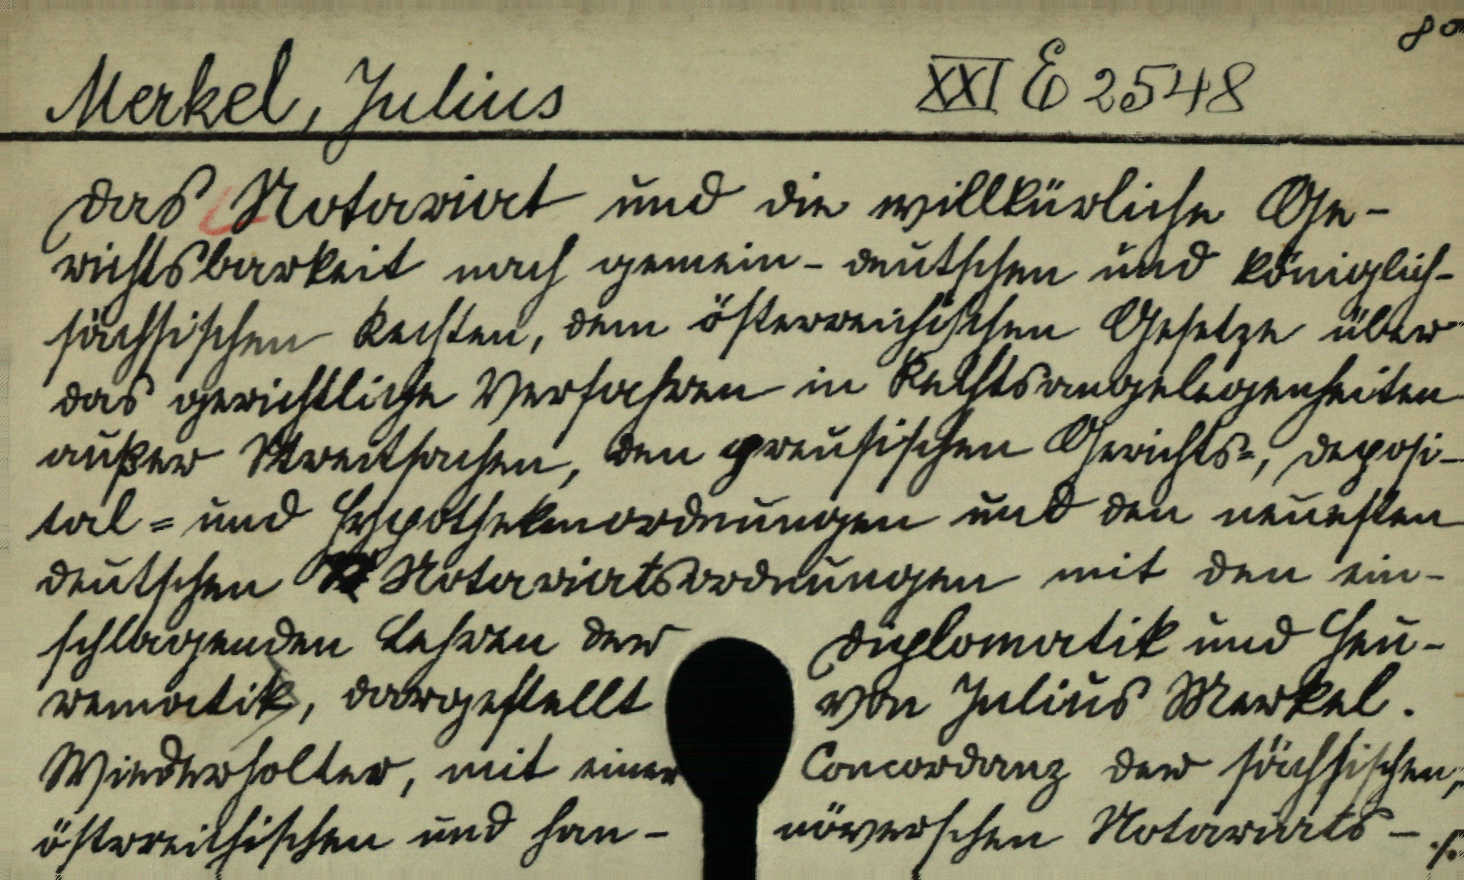 8°
Merkel, Julius XXI E 2548
Das Notariat und die willkürliche Ge-
richtsbarkeit nach gemein-deutschen und königlich-
sächsischen Rechten, dem österreichischen Gesetze über
das gerichtliche Verfahren in Rechtsangelegenheiten
außer Streitsachen, den preusischen Gerichts-, Deposi-
tal- und Hypothekenordnungen und den neuesten
deutschen Notariatsordnungen mit den ein-
schlagenden Lehren der Diplomatik und Heu-
rematik, dargestellt von Julius Merkel.
Wiederholter, mit einer Concordanz der sächsischen,
östreichischen und han- növerschen Notariats- ./.